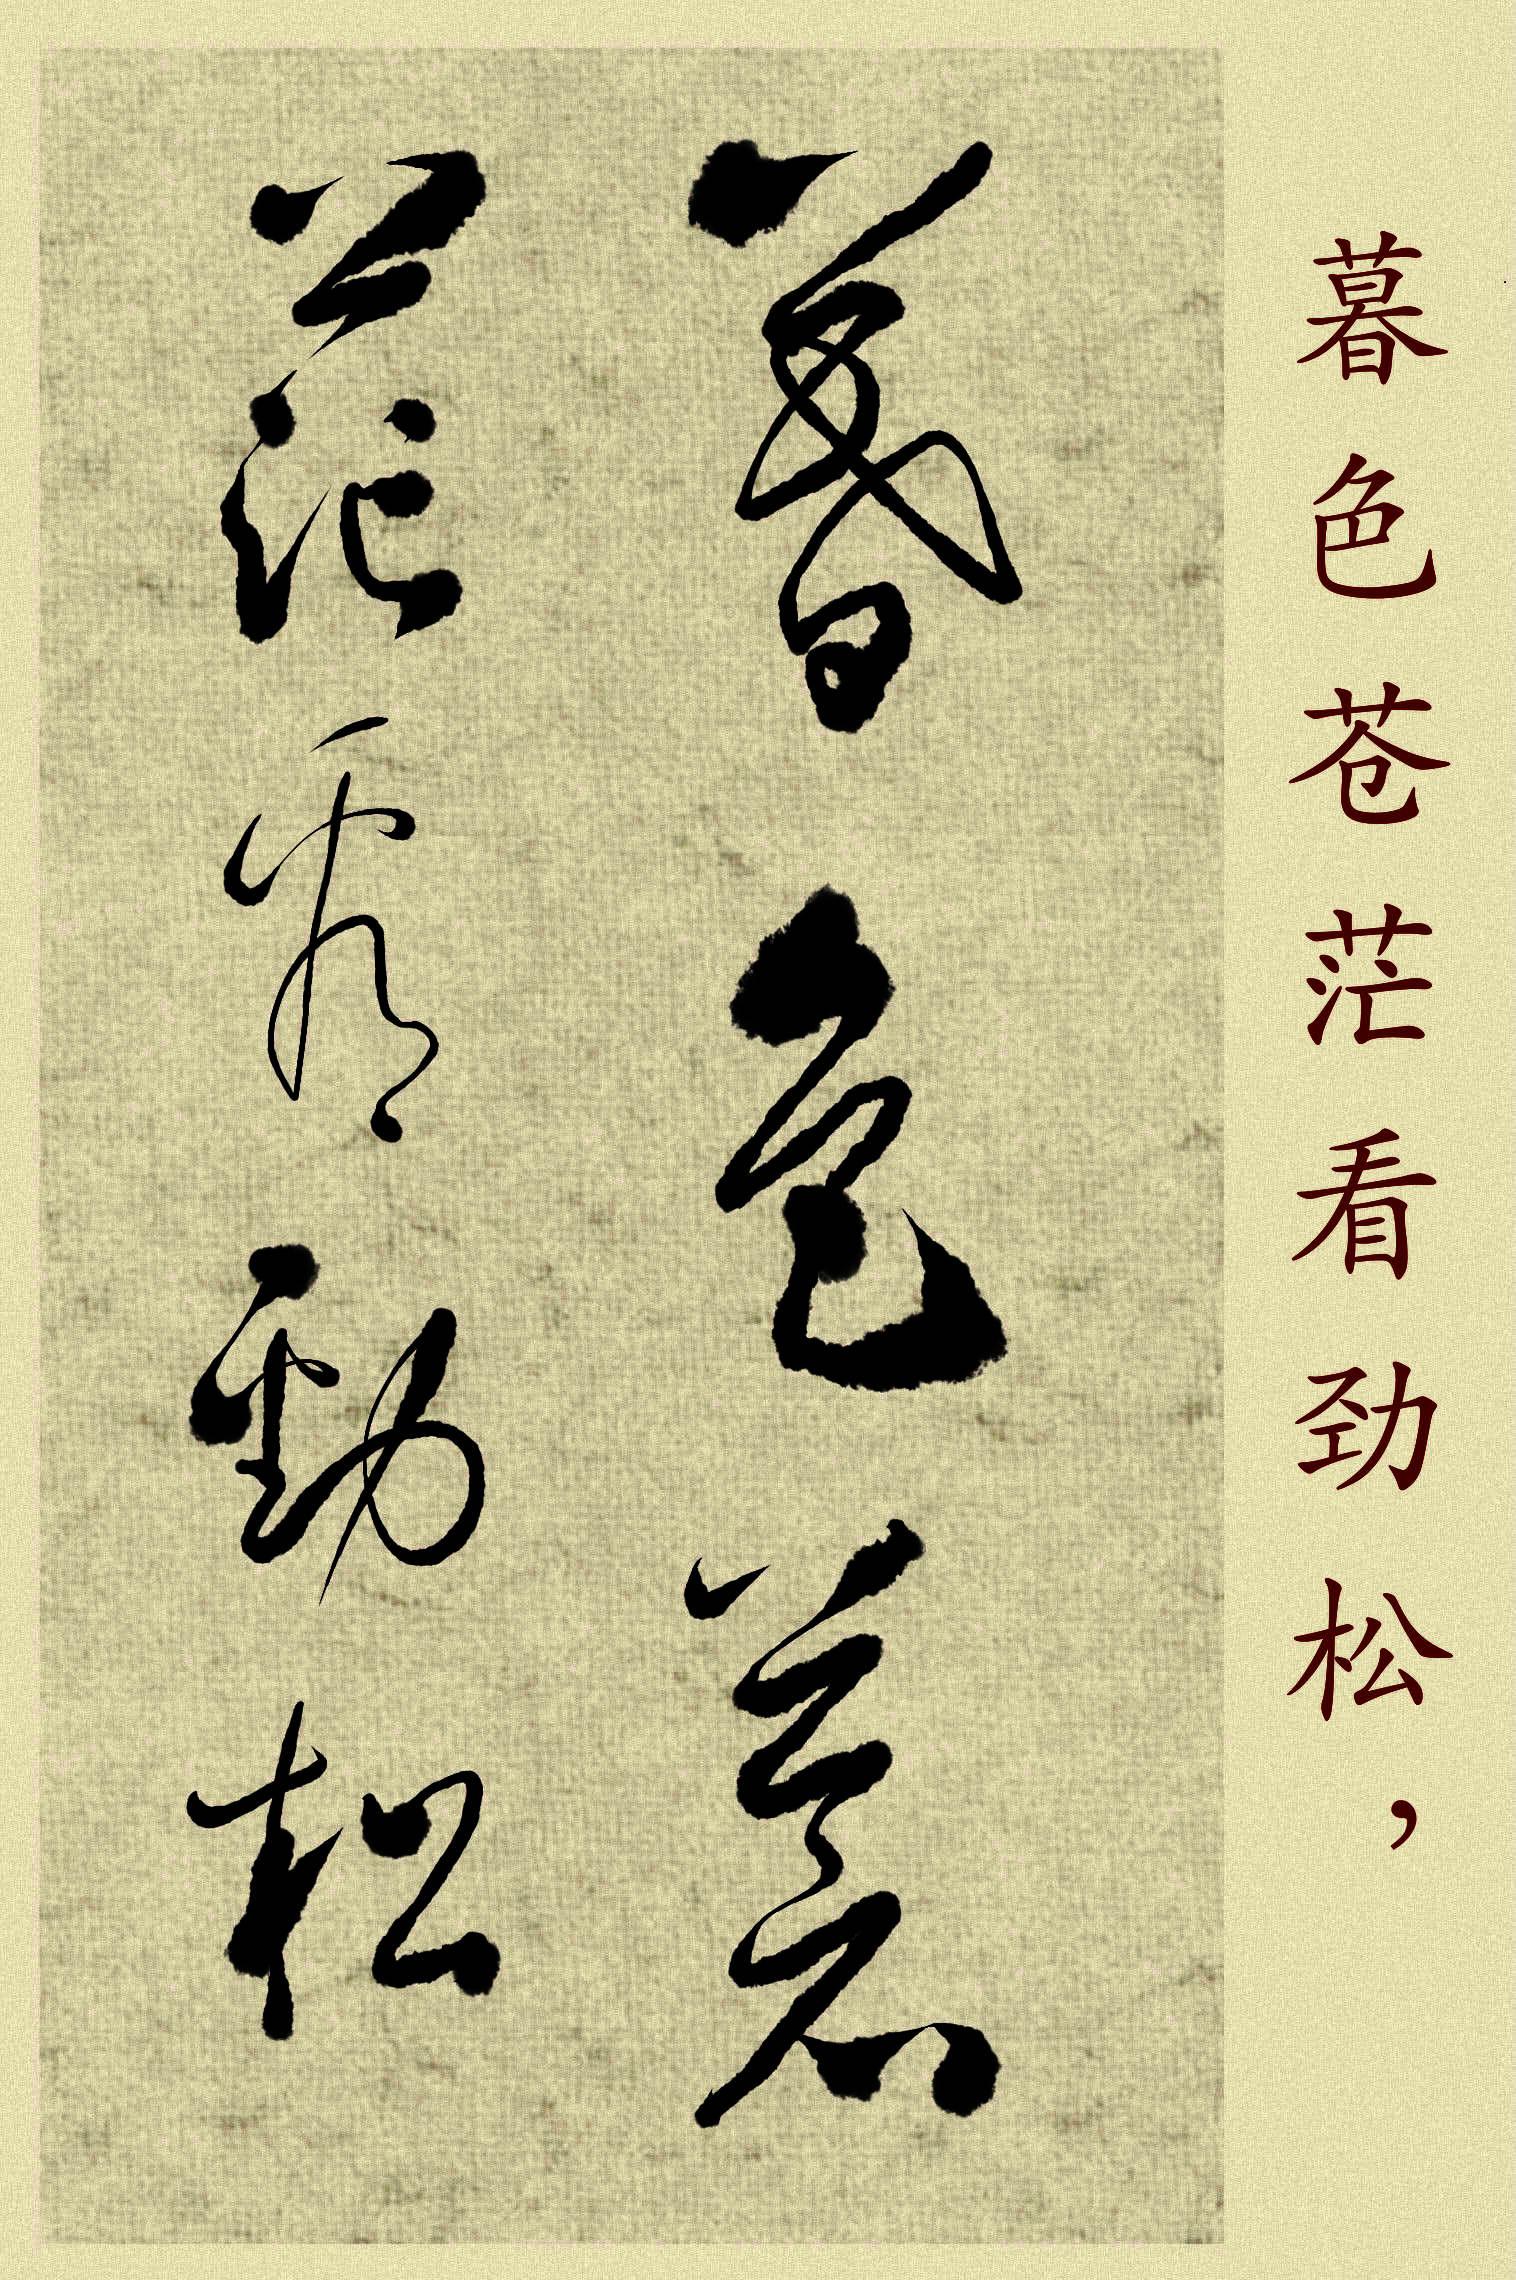 暮色苍茫看劲松，
暮色苍
茫看劲松